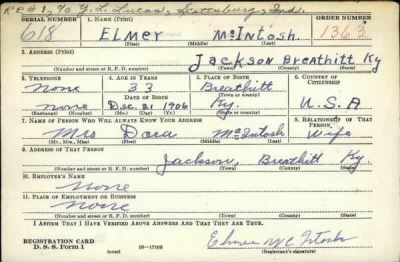 RR#1, % Y. L. Lucas, Scottsburg, Ind.
SERIAL NUMBER 1. NAME (Print) ORDER NUMBER
618 ELMER McIntosh. 1363
(First) (Middle) (Last)
2. ADDRESS (Print)
Jackson Breathitt Ky
(Number and street or R. F. D. number) (Town) (County) (State)
3. TELEPHONE 4. AGE IN YEARS 5. PLACE OF BIRTH 6. COUNTRY OF CITIZENSHIP
none 33 Breathitt
DATE OF BIRTH (Town or county)
none Dec. 21 1906 Ky. U.S.A
(Exchange) (Number) (Mo.) (Day) (Yr.) (State or country)
7. NAME OF PERSON WHO WILL ALWAYS KNOW YOUR ADDRESS 8. RELATIONSHIP OF THAT PERSON
Mrs Dora McIntosh Wife
(Mr., Mrs., Miss) (First) (Middle) (Last)
9. ADDRESS OF THAT PERSON
Jackson, Breathitt Ky.
(Number and street or R. F. D. number) (Town) (County) (State)
10. EMPLOYER'S NAME
None
11. PLACE OF EMPLOYMENT OR BUSINESS
None
(Number and street or R. F. D. number) (Town) (County) (State)
I AFFIRM THAT I HAVE VERIFIED ABOVE ANSWERS AND THAT THEY ARE TRUE.
REGISTRATION CARD Elmer McIntosh
D. S. S. Form 1 (over) 16—17105 (Registrant's signature)